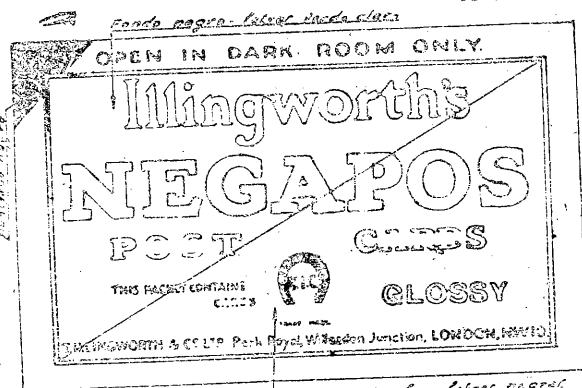 Fondo negro - letras verde claro
OPEN IN DARK ROOM ONLY.
Illingworth's
NEGAPOS
POST CARDS
THIS PACKET CONTAINS
CARDS
GLOSSY
TRADE MARK
ILLINGWORTH & CO LTD Park Royal, Willesden Junction, LONDON, NW10
letras negras